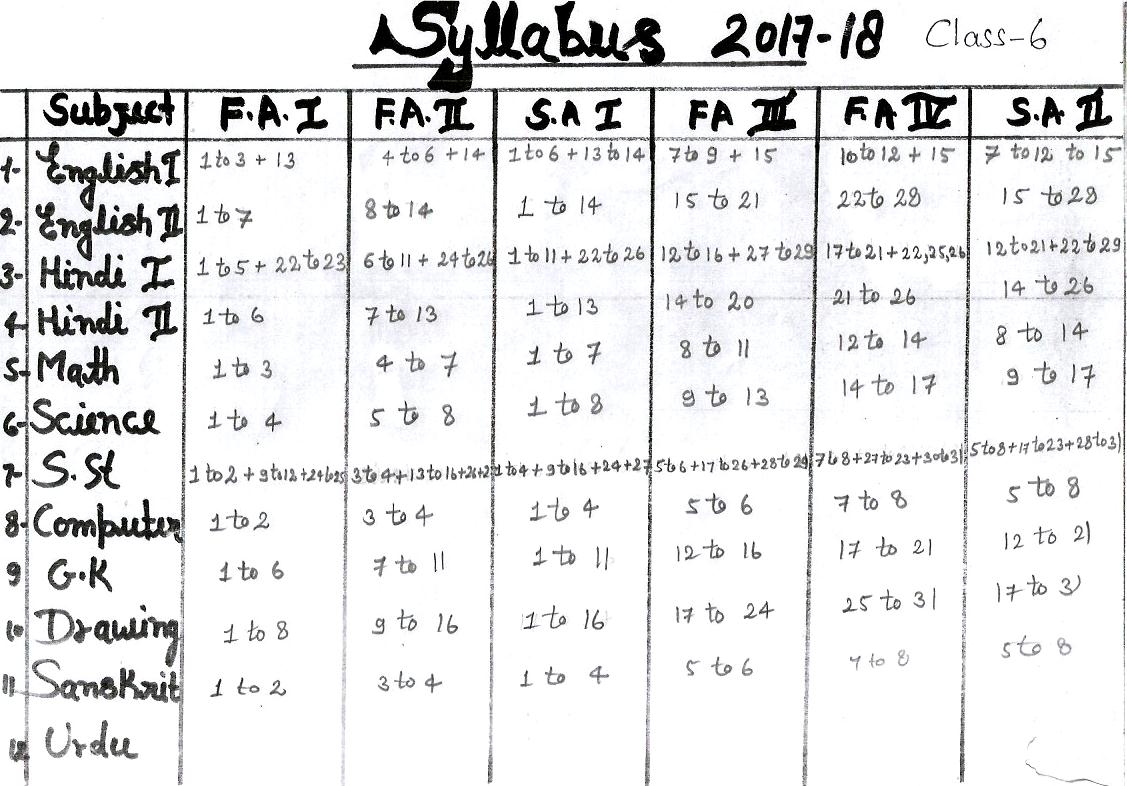 Syllabus 2017-18 Class-6
Subject F.A. I F.A. II S.A I FA III F.A IV S.A. II
1- English I 1 to 3 + 13 4 to 6 + 14 1 to 6 + 13 to 14 7 to 9 + 15 10 to 12 + 15 7 to 12 to 15
2- English II 1 to 7 8 to 14 1 to 14 15 to 21 22 to 28 15 to 28
3- Hindi I 1 to 5 + 22 to 23 6 to 11 + 24 to 26 1 to 11 + 22 to 26 12 to 16 + 27 to 29 17 to 21 + 22,25,26 12 to 21 + 22 to 29
4- Hindi II 1 to 6 7 to 13 1 to 13 14 to 20 21 to 26 14 to 26
5- Math 1 to 3 4 to 7 1 to 7 8 to 11 12 to 14 8 to 14
6- Science 1 to 4 5 to 8 1 to 8 9 to 13 14 to 17 9 to 17
7- S.St 1 to 2 + 9 to 12 + 24 to 25 3 to 4 + 13 to 16 + 26 + 1 to 4 + 9 to 16 + 24 + 27 5 to 6 + 17 to 26 + 28 to 29 7 to 8 + 27 to 23 + 30 to 31 5 to 8 + 17 to 23 + 28 to 31
8- Computer 1 to 2 3 to 4 1 to 4 5 to 6 7 to 8 5 to 8
9 G.K 1 to 6 7 to 11 1 to 11 12 to 16 17 to 21 12 to 21
10 Drawing 1 to 8 9 to 16 1 to 16 17 to 24 25 to 31 17 to 31
11 Sanskrit 1 to 2 3 to 4 1 to 4 5 to 6 7 to 8 5 to 8
12 Urdu